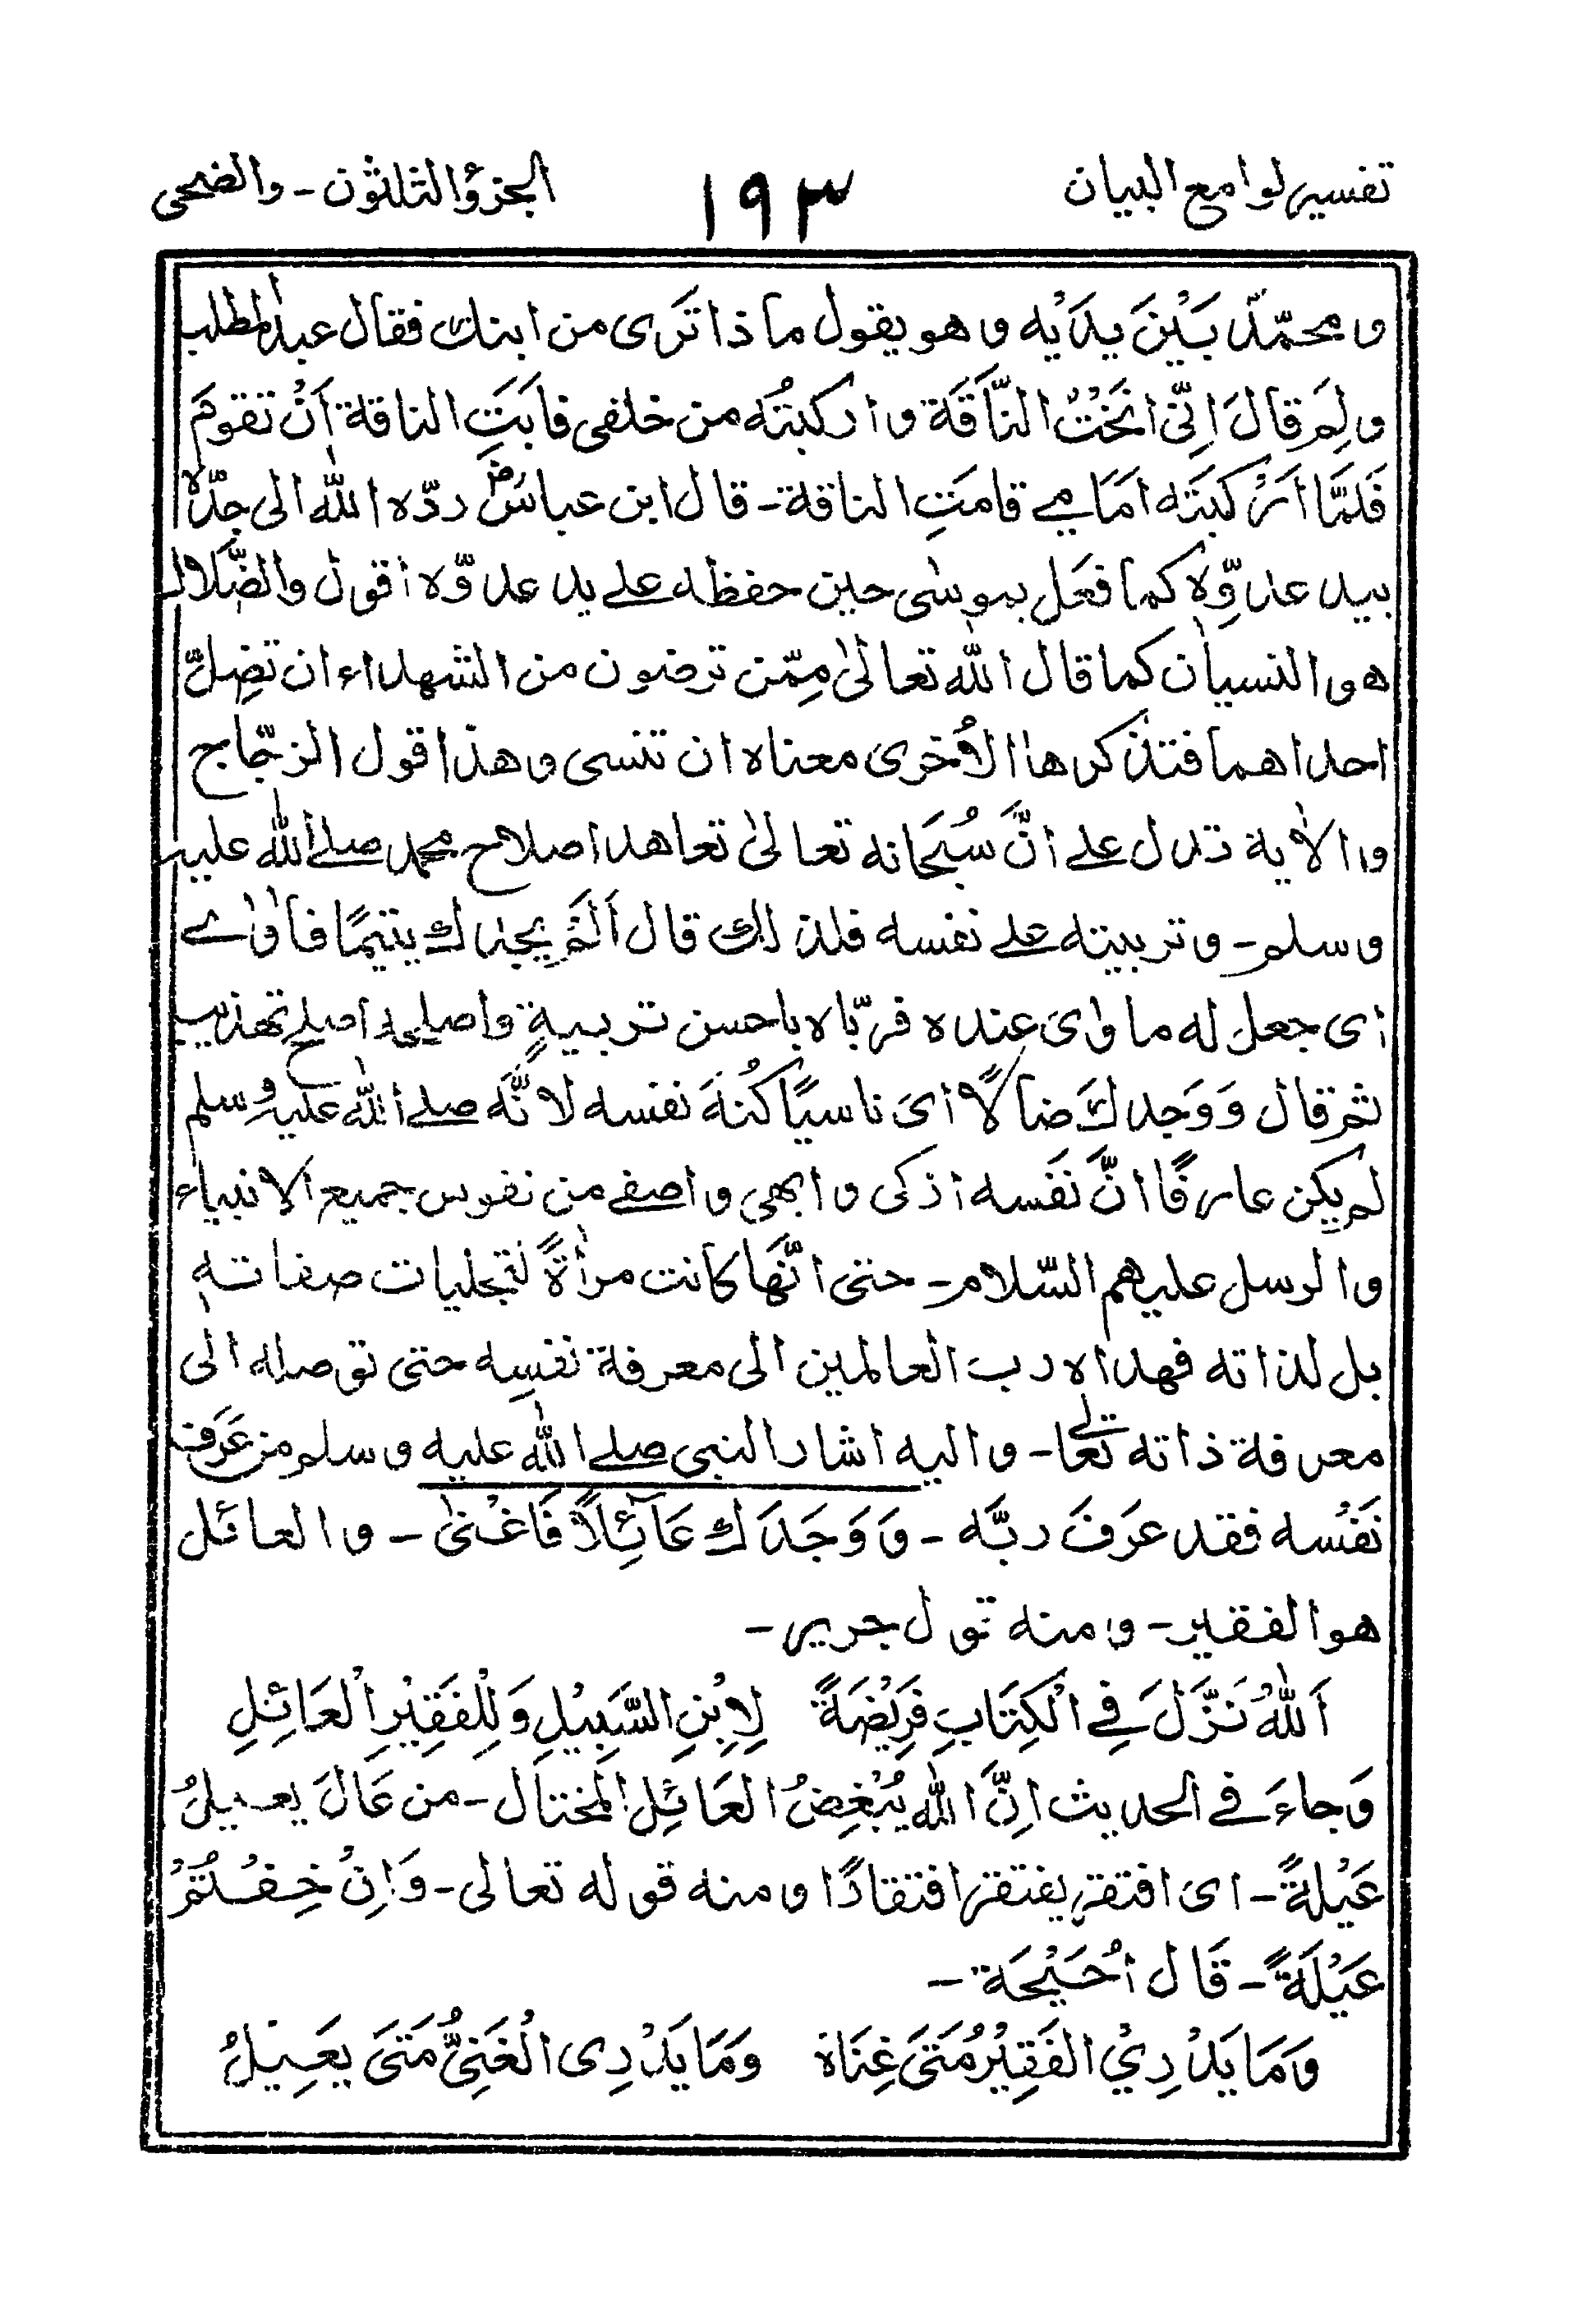 تفسیر لوامع البیان
١٩٣
الجزؤ الثلثون - والضحی
و محمّدٌ بَیْنَ یدَیْه و هو یقول ما ذا تَری من ابنك فقال عبدالمطلب
و لِمَ قالَ اِنّی انَخْتُ النَّاقَة و ارکبتُه من خلفی فابَتِ الناقة اَنْ تقومَ
فَلمَّا اَرْکبتَه امَامِے قامَتِ الناقة - قال ابن عباسؓ ردّه اللّٰه الی جدّہٖ
بید عدوِّہٖ کما فعَل بموسٰی حین حفظه علے ید عدوّہ اقول والضَّلال
هو النسیان کما قال اللّٰه تعالیٰ مِمّن ترضون من الشهداء ان تضِلّ
احداهما فتذکرها الاُخری معناہ ان تنسی و هذا قول الزجّاج
و الاٰیة تدل علے انَّ سُبَحانه تعالیٰ تعاهد اصلاح محمد صلے اللّٰه علیه
و سلم - و تربیته علے نفسه فلذٰلك قال اَلَمْ یجدك یتیمًا فاٰوٰے
ای جعل له ماوٰی عندہ فربّاہ باحسن تربیةٍ واصلح له اصلح تهذیب
ثم قال وَ وَجدكَ ضالًّا ای ناسیًا کُنهَ نفسه لانَّه صلے اللّٰه علیه وسلم
لم یکن عارفًا انَّ نَفَسه اذکی و ابهی و اصفے من نفوس جمیع الانبیاء
و الرسل علیهم السّلام - حتی انَّها کانت مراٰةً لتجلیات صفاته
بل لذاته فهداہ رب العالمین الی معرفة نفسِه حتی توصله الی
معرفة ذاته تعالٰے - و الیه اشار النبی صلے اللّٰه علیه و سلم من عَرَف
نَفَسُه فقد عرَفَ ربَّه - وَ وَجَدَكَ عَآئِلًا فَاَغْنیٰ - و العائل
هو الفقیر - و منه قول جریر -
اَللّٰهُ نَزَّلَ فِے الْکِتَابِ فَرِیْضَةً لِاِبْنِ السَّبِیْلِ وَ لِلْفَقِیْرِ الْعَائِلِ
وَ جاءَ فے الحدیث اِنَّ اللّٰه یُبْغِضُ العَائِل المختال - من عَالَ یعیلُ
عَیْلةً - ای افتقر یفتقر افتقارًا و منه قوله تعالی - وَ اِنْ خِفْتُمْ
عَیْلَةً - قَال اُحَیْحَة -
وَ مَا یَدْرِیْ الفَقِیْرُ مَتَی غِنَاہ وَ مَا یَدْرِی الْغَنِیُّ مَتَی یَعِیْلُ